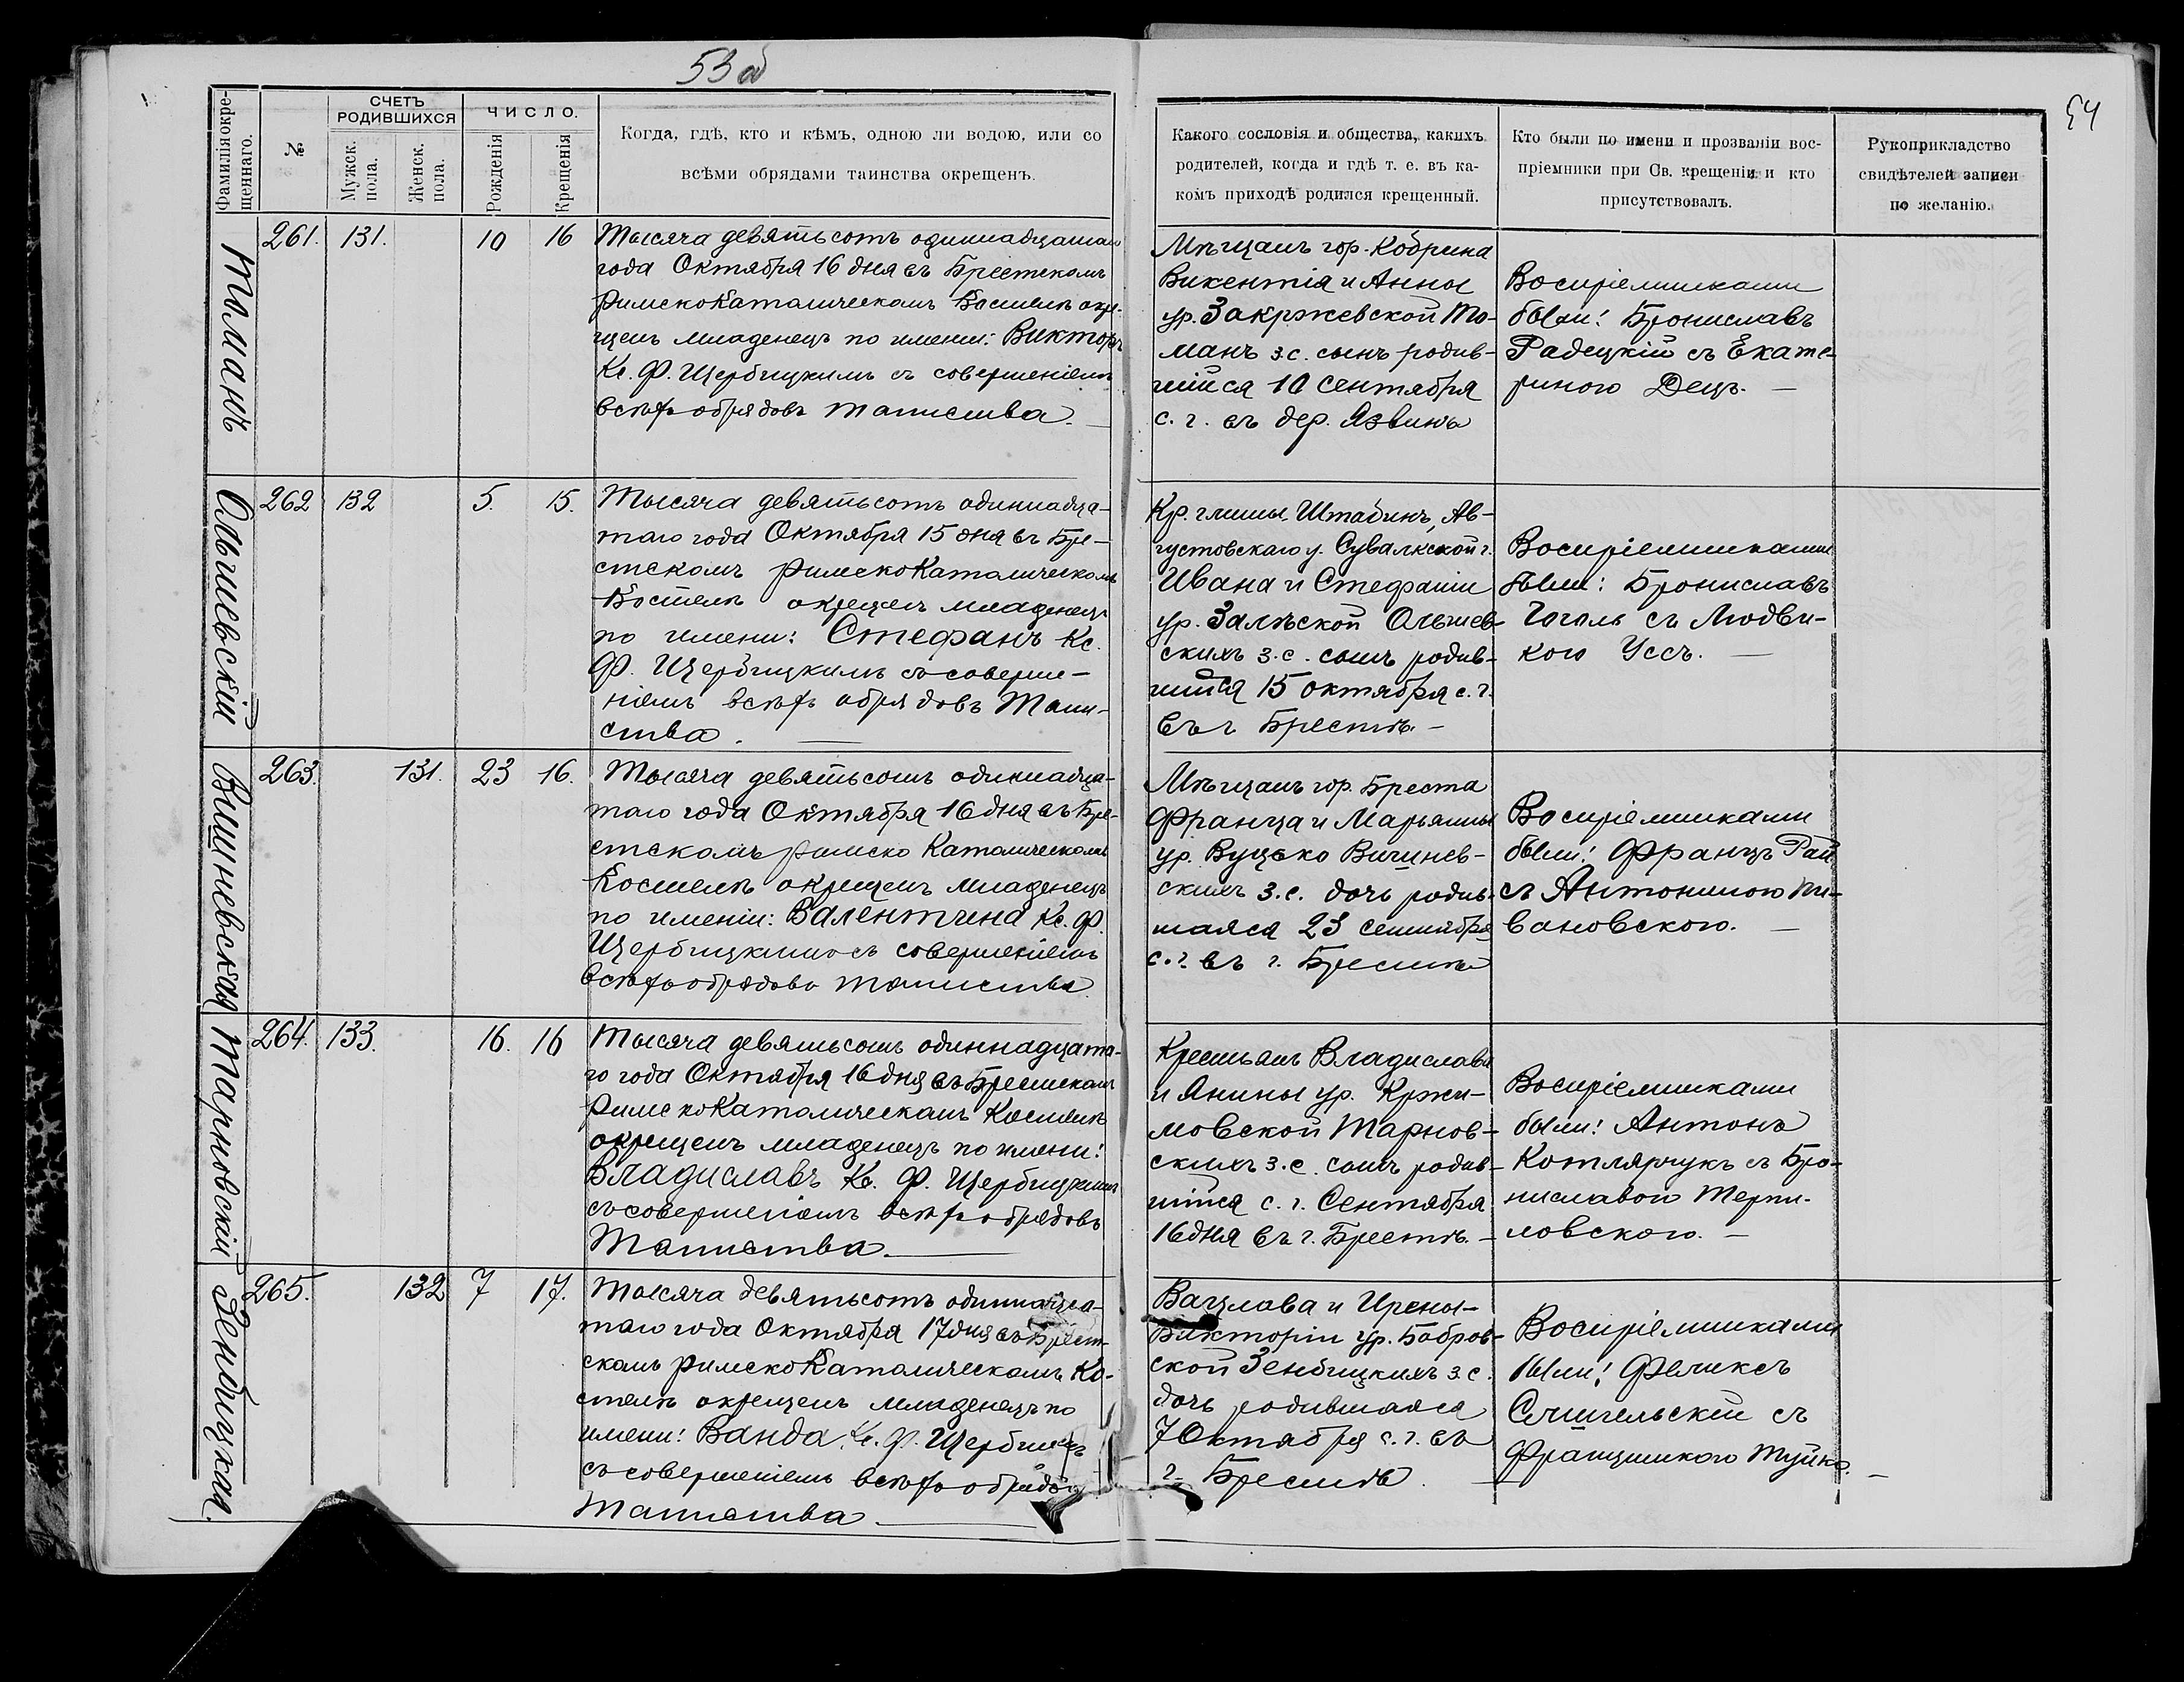 53 об
54
Фамилія окре-
щеннаго.
№
СЧЕТЪ
РОДИВШИХСЯ
Мужск.
пола.
Женск.
пола.
ЧИСЛО.
Рожденія
Крещенія
Когда, гдѣ, кто и кѣмъ, одною ли водою, или со
всѣми обрядами таинства окрещенъ.
Какого сословія и общества, какихъ
родителей, когда и гдѣ т. е. въ ка-
комъ приходѣ родился крещенный.
Кто были по имени и прозваніи вос-
пріемники при Св. крещеніи и кто
присутствовалъ.
Рукоприкладство
свидѣтелей записи
по желанію.
Томанъ
261. 131. 10 16
Тысяча девятьсотъ одиннадцатаго
года Октября 16 дня въ Брестскомъ
РимскоКатолическомъ Костелѣ окре-
щенъ младенецъ по имени: Викторъ
Кс. Ф. Щербицкимъ съ совершеніемъ
всѣхъ обрядовъ таинства. —
Мѣщанъ гор. Кобрина
Викентія и Анны
ур. Закржевской То-
манъ з.с. сынъ родив-
шійся 10 Сентября
с. г. въ дер. Язвинъ
Воспріемниками
были: Брониславъ
Радецкій съ Екате-
риною Децъ. —
Ольшевскій
262 132 5. 15.
Тысяча девятьсотъ одиннадца-
таго года Октября 15 дня въ Бре-
стскомъ РимскоКатолическомъ
Костелѣ окрещенъ младенецъ
по имени: Стефанъ Кс.
Ф. Щербицкимъ съ соверше-
ніемъ всѣхъ обрядовъ Таин-
ства. —
Кр. гмины Штабинъ, Ав-
густовскаго у. Сувалкской г.
Ивана и Стефаніи
ур. Залѣской Ольшев-
скихъ з.с. сынъ родив-
шійся 15 октября с. г.
въ г Брестѣ. —
Воспріемниками
были: Брониславъ
Гоголь съ Людви-
кою Уссъ. —
Вишневская
263. 131. 23 16.
Тысяча девятьсотъ одиннадца-
таго года Октября 16 дня въ Бре-
стскомъ римско Католическомъ
Костелѣ окрещенъ младенецъ
по имени: Валентина Кс. Ф.
Щербицкимъ съ совершеніемъ
всѣхъ обрядовъ таинства
Мѣщанъ гор. Бреста
Франца и Марьянны
ур. Вуцько Вишнев-
скихъ з.с. дочь родив-
шаяся 23 сентября
с. г. въ г. Брестѣ
Воспріемниками
были: Францъ Рай
съ Антониною Пи-
вановскою. —
Тарновскій
264. 133. 16. 16
Тысяча девятьсотъ одиннадцата-
го года Октября 16 дня въ Брестскомъ
РимскоКатолическомъ Костелѣ
окрещенъ младенецъ по имени:
Владиславъ Кс. Ф. Щербицкимъ
съ совершеніемъ всѣхъ обрядовъ
Таинства. —
Крестьянъ Владислава
и Янины ур. Кржи-
мовской Тарнов-
скихъ з.с. сынъ родив-
шійся с. г. Сентября
16 дня въ г. Брестѣ. —
Воспріемниками
были: Антонъ
Котлярчукъ съ Бро-
ниславою Терпи-
ловскою. —
Зенбицкая.
265. 132 7 17.
Тысяча девятьсотъ одиннадца-
таго года Октября 17 дня въ Брест-
скомъ римскоКатолическомъ Ко-
стелѣ окрещенъ младенецъ по
имени: Ванда Кс. Ф. Щербицкимъ
съ совершеніемъ всѣхъ обрядовъ
Таинства. —
Вацлава и Ирены-
Викторіи ур. Бобров-
ской Зенбицкихъ з.с.
дочь родившаяся
7 Октября с. г. въ
г. Брестѣ. —
Воспріемниками
были: Феликсъ
съ
Францишкою —